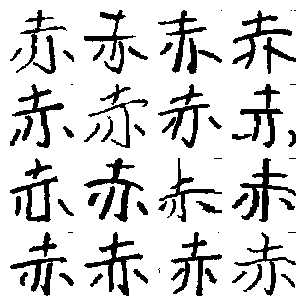 赤赤赤赤
赤赤赤赤
赤赤赤赤
赤赤赤赤